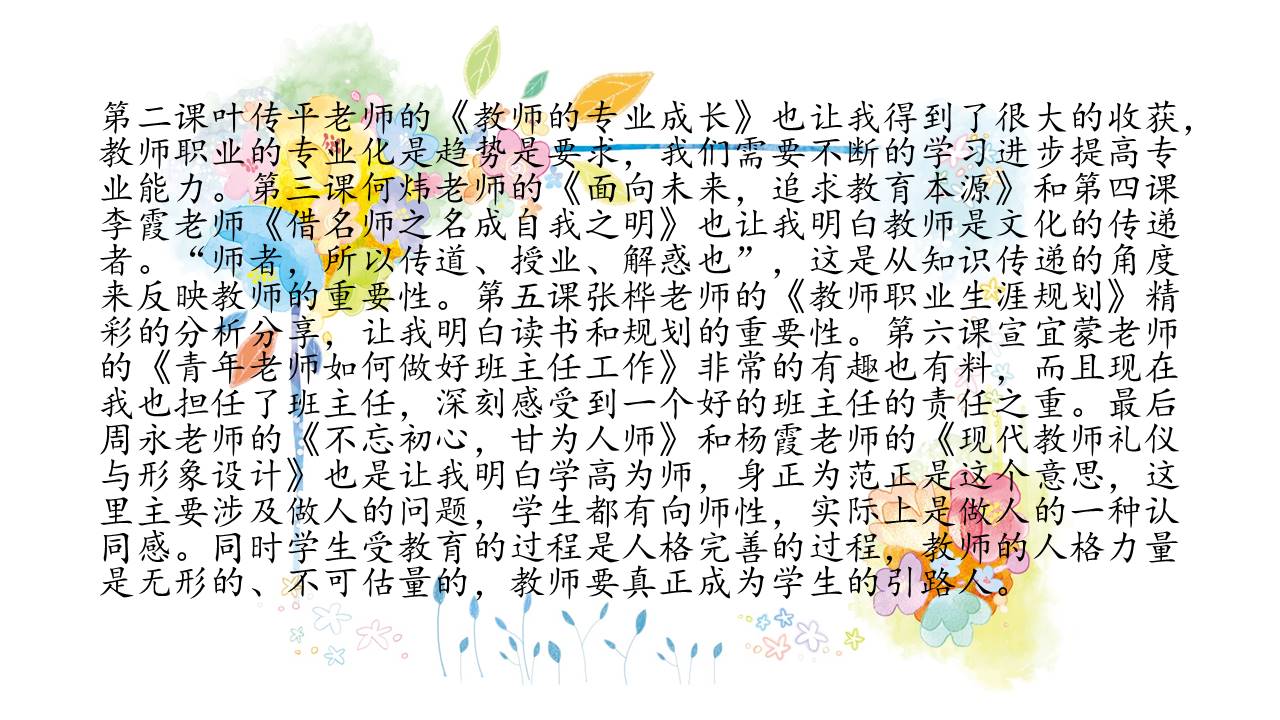 第二课叶传平老师的《教师的专业成长》也让我得到了很大的收获，
教师职业的专业化是趋势是要求，我们需要不断的学习进步提高专
业能力。第三课何炜老师的《面向未来，追求教育本源》和第四课
李霞老师《借名师之名成自我之明》也让我明白教师是文化的传递
者。“师者，所以传道、授业、解惑也”，这是从知识传递的角度
来反映教师的重要性。第五课张桦老师的《教师职业生涯规划》精
彩的分析分享，让我明白读书和规划的重要性。第六课宣宜蒙老师
的《青年老师如何做好班主任工作》非常的有趣也有料，而且现在
我也担任了班主任，深刻感受到一个好的班主任的责任之重。最后
周永老师的《不忘初心，甘为人师》和杨霞老师的《现代教师礼仪
与形象设计》也是让我明白学高为师，身正为范正是这个意思，这
里主要涉及做人的问题，学生都有向师性，实际上是做人的一种认
同感。同时学生受教育的过程是人格完善的过程，教师的人格力量
是无形的、不可估量的，教师要真正成为学生的引路人。